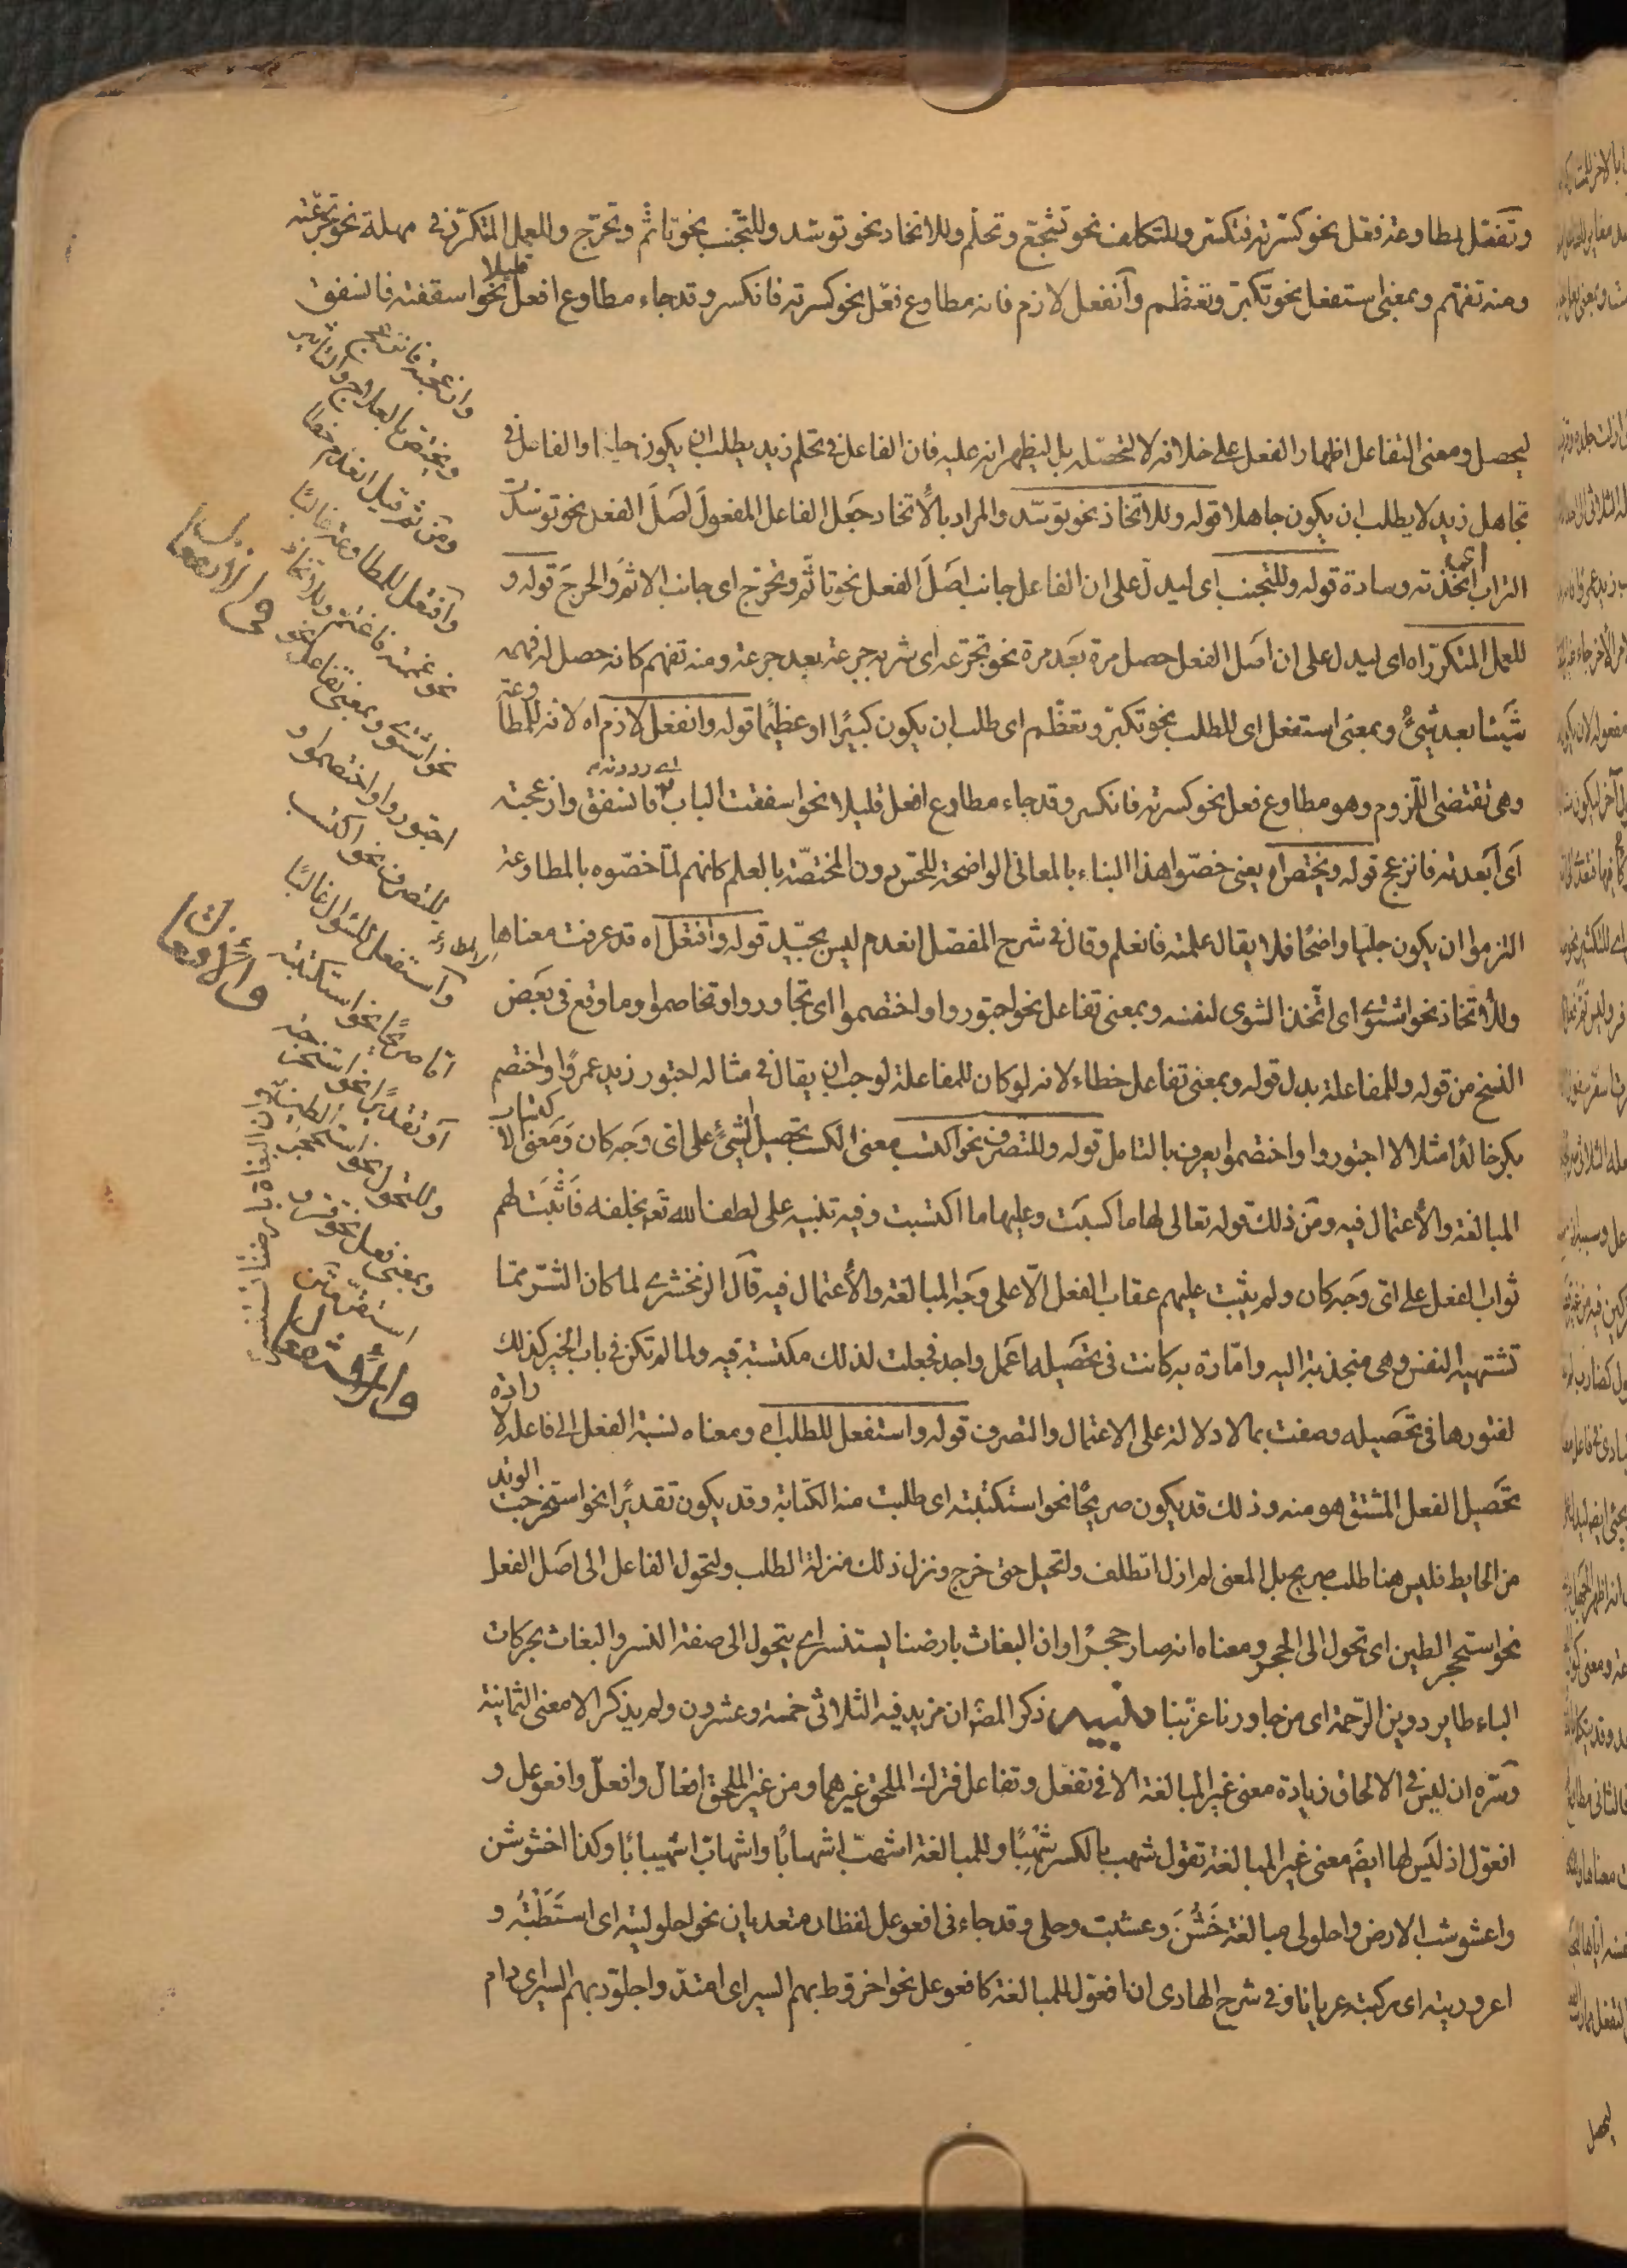 وتفعّل لمطاوعة فعّل نحو كسّرته فتكسّر وللتكلف نحو تشجّع وتحلّم وللاتخاذ نحو توسّد وللتجنب نحو تأثّم وتحرّج وللعمل المتكرر في مهلة نحو تجرّعته
ومنه تفهّم وبمعنى استفعل نحو تكبّر وتعظّم وانفعل لازم فانه مطاوع فعل نحو كسرته فانكسر وقد جاء مطاوع افعل نحو اسقفته فانسفق
قليلا
وازعجته فانزعج
ويختص بالعلاج والتاثير
ومن ثم قيل انعدم خطا
وافتعل للمطاوعة غالبًا
نحو غممته فاغتم وللاتخاذ
نحو اشتوى وبمعنى تفاعل نحو
اجتوروا واختصموا و
للتصرف نحو اكتسب
واستفعل للسؤال غالبًا
اما صريحًا نحو استكتبته
او تقديرًا نحو استخرجته
وللتحول نحو استحجر الطين وان البغاث بارضنا يستنسر
وبمعنى فعل نحو قرّ و
استقرّ
ليحصل ومعنى التفاعل اظهار الفعل على خلافه لا لتحصّله بل ليظهر انه عليه فان الفاعل في تحلم زيد يطلب ان يكون حليما والفاعل في
تجاهل زيد لا يطلب ان يكون جاهلا قوله وللاتخاذ نحو توسّد والمراد بالاتخاد جعل الفاعل المفعول اصل الفعل نحو توسدت
التراب اى اتخذته وسادة قوله وللتجنب اى ليدل على ان الفاعل جانب اصل الفعل نحو تاثّم وتحرّج اى جانب الاثم والحرج قوله و
للعمل المتكرر اه اى ليدل على ان اصل الفعل حصل مرة بعد مرة نحو تجرعته اى شربته جرعة بعد جرعة ومنه تفهم كانه حصل له فهمه
شيئا بعد شئ وبمعنى استفعل اى للطلب نحو تكبّر وتعظّم اى طلب ان يكون كبيرًا او عظيمًا قوله وانفعل لازم اه لانه للمطاوعة
وهى تقتضى اللزوم وهو مطاوع فعل نحو كسرته فانكسر وقد جاء مطاوع افعل قليلا نحو اسفقت الباب فانسفق وازعجته
اى رددته
اى ابعدته فانزعج قوله ويختص اه يعنى خصّوا هذا البناء بالمعانى الواضحة للحس دون المختصّة بالعلم كانهم لمّا خصّوه بالمطاوعة
التزموا ان يكون جليًا واضحًا فلا يقال علمته فانعلم وقال في شرح المفصل انعدم ليس بجيّد قوله وافتعل اه قد عرفت معناها
وللاتخاذ نحو اشتوى اى اتّخذ الشوى لنفسه وبمعنى تفاعل نحو اجتوروا واختصموا اى تجاوروا وتخاصموا وما وقع في بعض
النسخ من قوله وللمفاعلة بدل قوله وبمعنى تفاعل خطاء لانه لو كان للمفاعلة لوجب ان يقال في مثاله اجتور زيد عمروًا واختصم
بكر خالدًا مثلا لا اجتوروا واختصموا يعرف بالتامل قوله وللتصرف نحو اكتسب معنى الكسب تحصيل الشئ على اى وجه كان ومعنى الاكتساب
المبالغة والاعتمال فيه ومن ذلك قوله تعالى لها ما كسبت وعليها ما اكتسبت وفيه تنبيه على لطف الله تعالى بخلقه فاثبت لهم
ثواب الفعل على اى وجه كان ولم يثبت عليهم عقاب الفعل الّا على وجه المبالغة والاعتمال فيه قال الزمخشرى لما كان الشرّ ممّا
تشتهيه النفس وهى منجذبة اليه وامّارة به كانت في تحصيله اعمل واجد فجعلت لذلك مكتسبة فيه ولما لم تكن في باب الخير كذلك
لفتورها في تحصيله وصفت بما لا دلالة على الاعتمال والتصرف قوله واستفعل للطلب اه ومعناه نسبة الفعل الى فاعله لارادة
تحصيل الفعل المشتق هو منه وذلك قد يكون صريحًا نحو استكتبته اى طلبت منه الكتابة وقد يكون تقديرًا نحو استخرجت الوتد
من الحايط فليس هنا طلب صريح بل المعنى لم ازل اتطلف واتحيل حتى خرج ونزل ذلك منزلة الطلب ولتحول الفاعل الى اصل الفعل
نحو استحجر الطين اى تحول الى الحجر ومعناه انه صار حجرًا وان البغاث بارضنا يستنسر اى يتحول الى صفة النسر والبغاث بحركات
الباء طاير دوين الرّحمة اى من جاورنا عزّ بنا تنبيه ذكر المص ان مزيد فيه الثلاثى خمسة وعشرون ولم يذكر الا معنى الثمانية
وسرّه ان ليس في الالحاق زيادة معنى غير المبالغة الا في تفعّل وتفاعل فترك الملحق غيرهما ومن غير الملحق افعالّ وافعلّ وافعوعل و
افعوّل اذ ليس لها ايضَ معنى غير المبالغة تقول شهب بالكسر شهبًا وللمبالغة اشهبّ اشهبابًا واشهابّ اشهيبابًا وكذا اخشوشن
واعشوشب الارض واحلولى مبالغة خشن وعشبت وحلى وقد جاء في افعوعل لفظان متعديان نحو احلوليته اى استطبته و
اعروريته اى ركبته عريانا وفي شرح الهادى ان افعوّل للمبالغة كافعوعل نحو اخروّط بهم السير اى امتدّ واجلوّذ بهم السير اى دام